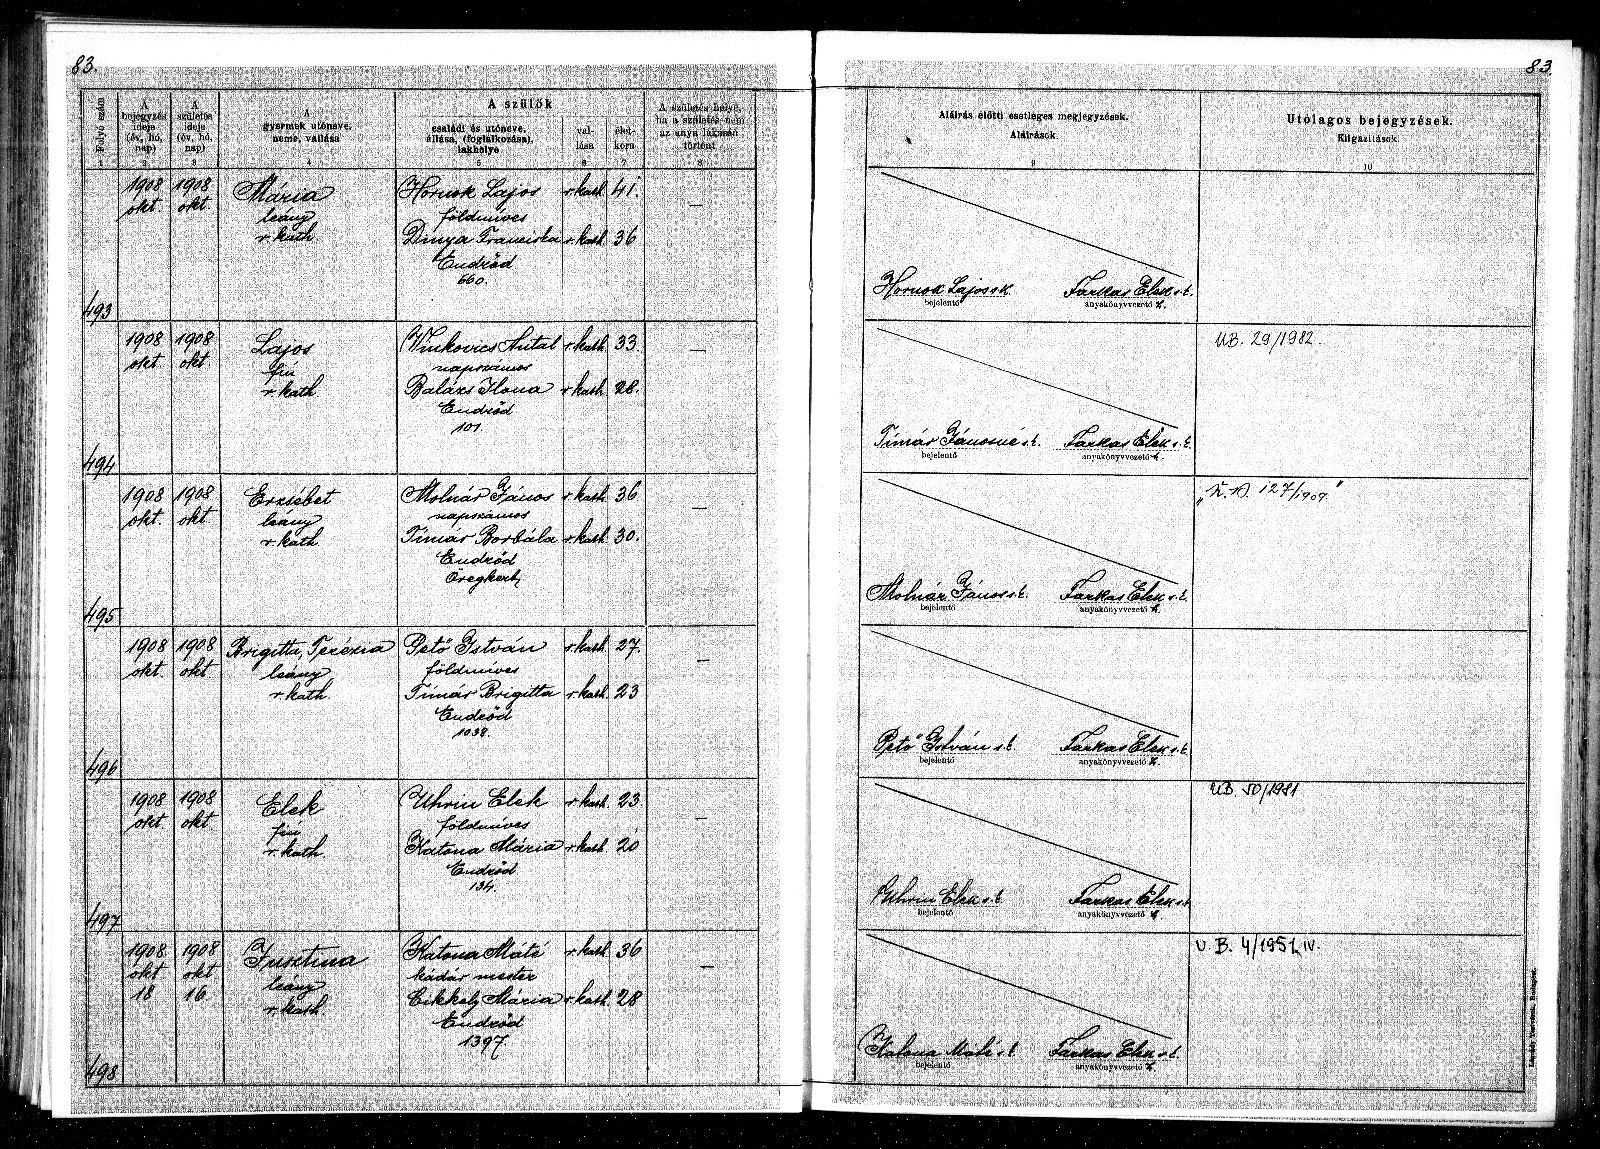 83.
83.
Folyó szám
A bejegyzés ideje (év, hó, nap)
A születés ideje (év, hó, nap)
A gyermek utóneve, neme, vallása
A szülők
családi és utóneve, állása, (foglalkozása), lakhelye
vallása
életkora
A születés helye, ha a születés nem az anya lakásán történt
1 2 3 4 5 6 7 8
Aláírás előtti esetleges megjegyzések.
Aláírások.
9
Utólagos bejegyzések.
Kiigazítások.
10
493
1908 okt.
1908 okt
Mária
leány
r. kath.
Hornok Lajos r. kath. 41.
földmíves
Dinya Franciska r. kath. 36
Endrőd
660.
—
Hornok Lajos sk.
bejelentő
Farkas Elek s. k.
anyakönyvvezető h.
494
1908 okt
1908 okt.
Lajos
fiú
r. kath
Vinkovics Antal r. kath. 33.
napszámos
Balázs Ilona r. kath. 28.
Endrőd
101
—
Tímár Jánosné s. k.
bejelentő
Farkas Elek s. k.
anyakönyvvezető h.
UB. 29/1982.
495
1908 okt.
1908 okt
Erzsébet
leány
r. kath.
Molnár János r. kath. 36
napszámos
Tímár Borbála r. kath. 30.
Endrőd
Öregkert
—
Molnár János s. k.
bejelentő
Farkas Elek s. k.
anyakönyvvezető h.
127/1909"
496
1908 okt.
1908 okt.
Brigitta, Terézia
leány
r. kath.
Pető István r. kath. 27.
földmíves
Tímár Brigitta r. kath. 23
Endrőd
1038.
—
Pető István s. k.
bejelentő
Farkas Elek s. k.
anyakönyvvezető h.
497
1908 okt.
1908 okt.
Elek
fiú
r. kath.
Uhrin Elek r. kath. 23.
földmíves
Katona Mária r. kath. 20
Endrőd
134.
—
Uhrin Elek s. k.
bejelentő
Farkas Elek s. k.
anyakönyvvezető h.
UB. 50/1981
498
1908 okt 18
1908 okt 16.
Jusztina
leány
r. kath.
Katona Máté r. kath. 36
kádár mester
Mária r. kath. 28
Endrőd
1397.
—
Katona Máté s. k.
bejelentő
Farkas Elek s. k.
anyakönyvvezető h.
U. B. 4/1951. IV.